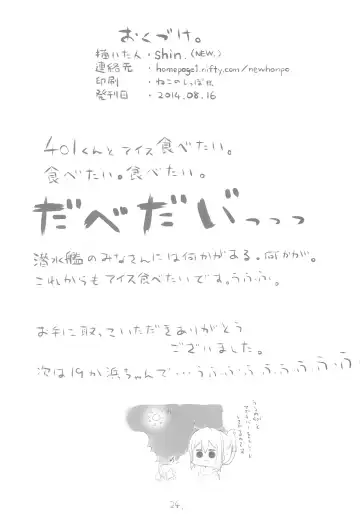 おくづけ。
描いたん・shin.(NEW.)
連絡先・homepage1.nifty.com/newhanpe
印刷・ねこのしっぽ様
発刊日・2014.08.16
401くんとアイス食べたい。
食べたい。食べたい。
だべだいっっっ
潜水艦のみなさんには何かがある。何かが。
これからもアイス食べたいです。うふふ。
お手に取っていただきありがとう
ございました。
次は19か浜ちゃんで…うふふふふふふふふ
24.